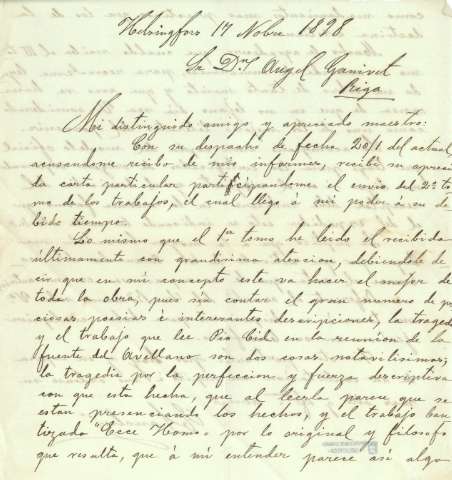 Helsingfors 17 Nobre. 1898
Sr Dn. Angel Ganivet
Riga
Mi distinguido amigo y apreciado maestro:
Con su despacho de fecha 20/1 del actual,
acusandome recibo de mis informes, recibí su aprecia
da carta particular participandome el envio del 2º to
mo de los trabajos, el cual llegó á mi poder á su de
bido tiempo.
Lo mismo que el 1er tomo he leido el recibido
últimamente con grandisima atencion, debiendole de
cir que en mi concepto este va hacer el mejor de
toda la obra, pues sin contar el gran numero de pre
ciosas poesias é interesantes descripciones, la tragedia
y el trabajo que lee Pio Cid en la reunion de la
fuente del Avellano son dos cosas notavilisimas;
la tragedia por la perfeccion y fuerza descriptiva
con que esta hecha, que al leerla parece que se
estan presenciando los hechos, y el trabajo bau
tizado "Ecce Homo" por lo original y filosofo
que resulta, que á mi entender parece asi algo